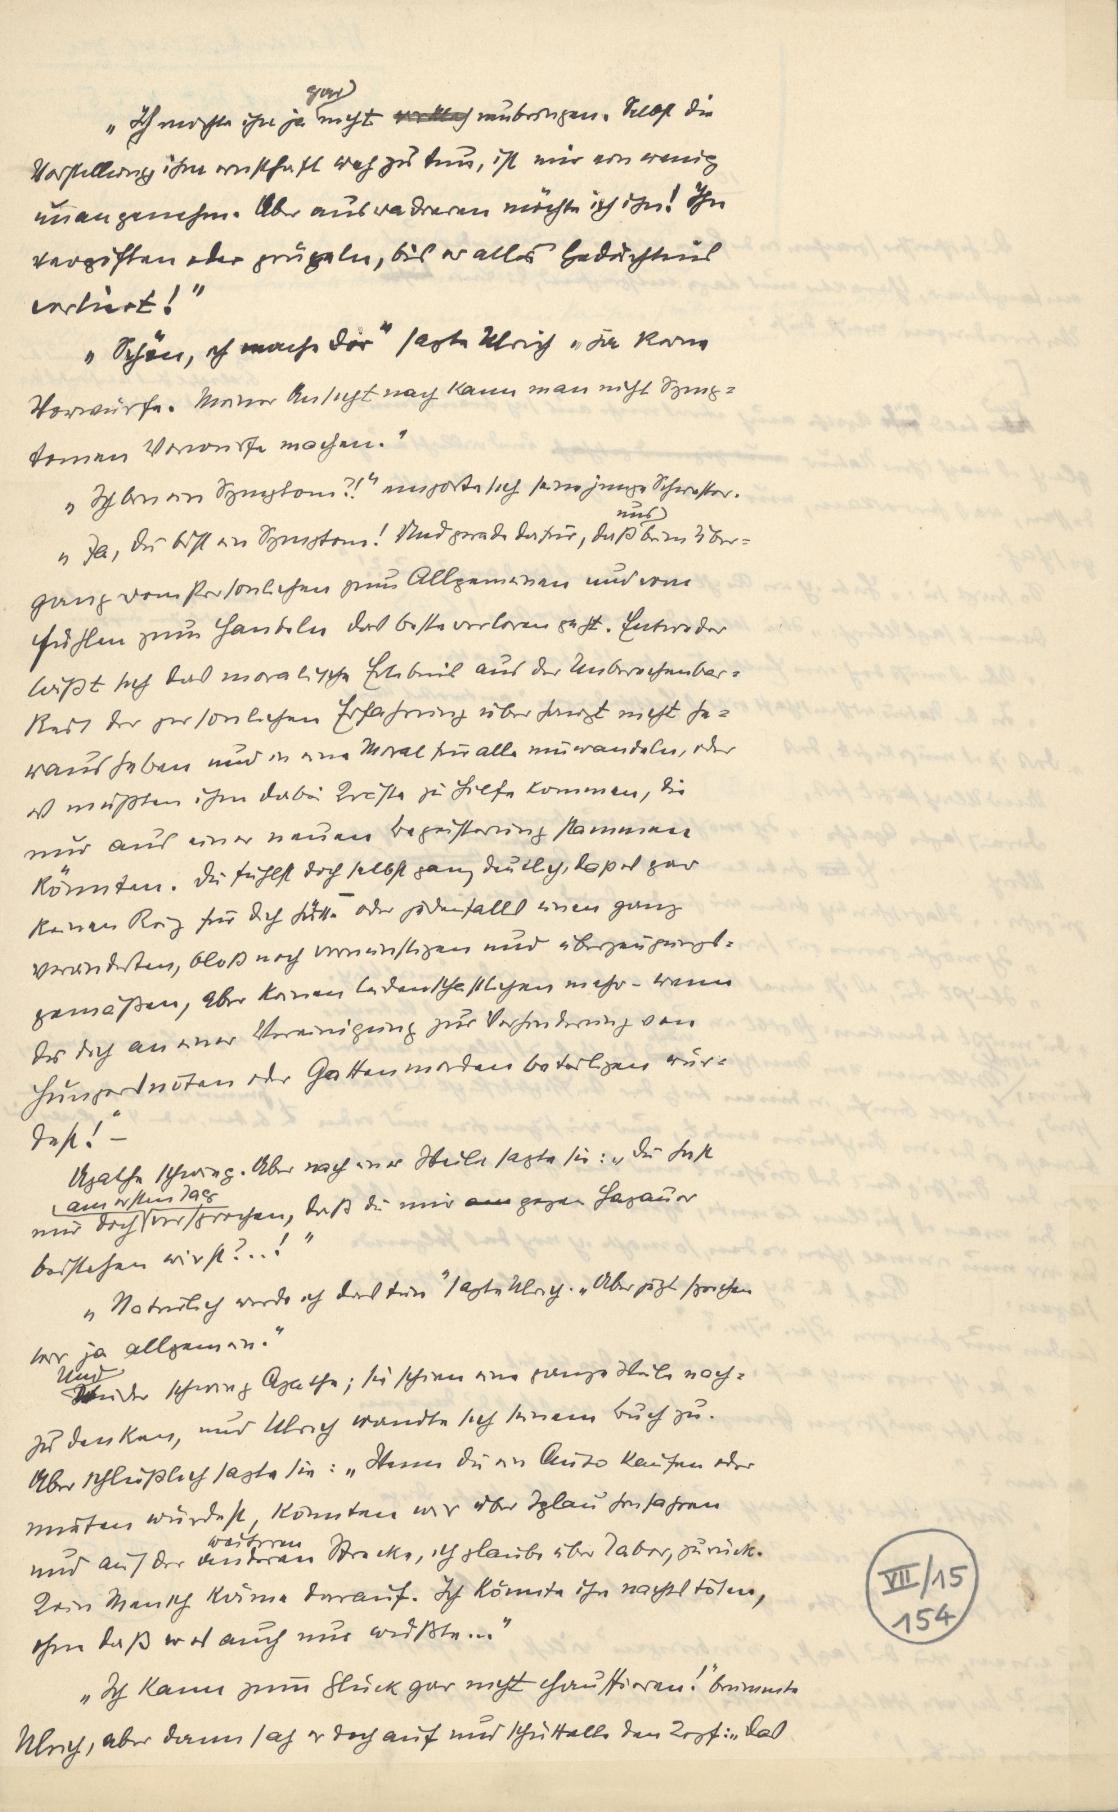 gar
„Ich möchte ihn ja nicht wirklich umbringen. Selbst die
Vorstellung, ihm ernsthaft weh zu tun, ist mir ein wenig
unangenehm. Aber ausradieren möchte ich ihn! Ihn
vergiften oder prügeln, bis er alles Gedächtnis
verliert!"
„Schön, ich mache dir" sagte Ulrich „ja keine
Vorwürfe. Meiner Ansicht nach kann man nicht Symp=
tomen Vorwürfe machen."
„Ich bin ein Symptom?!" empörte sich seine junge Schwester.
uns
„Ja, du bist ein Symptom! Und gerade dafür, daß beim Über=
gang vom Persönlichen zum Allgemeinen und vom
Fühlen zum Handeln das beste verloren geht. Entweder
läßt sich das moralische Erlebnis aus der Unberechenbar=
keit der persönlichen Erfahrung überhaupt nicht he=
rausheben und in eine Moral für alle umwandeln, oder
es müßten ihm dabei Kräfte zu Hilfe kommen, die
nur aus einer neuen Begeisterung stammen
könnten. Du fühlst doch selbst ganz deutlich, daß es gar
keinen Reiz für dich hätte – oder jedenfalls einen ganz
veränderten, bloß noch vernünftigen und überzeugungs=
gemäßen, aber keinen leidenschaftlichen mehr – wenn
du dich an einer Vereinigung zur Verhinderung von
Hungersnöten oder Gattenmorden beteiligen wür=
dest!" –
Agathe schwieg. Aber nach einer Weile sagte sie: „Du hast
am ersten Tag
mir doch versprochen, daß du mir gegen Hagauer
beistehen wirst?..!"
„Natürlich werde ich das tun" sagte Ulrich. „Aber jetzt sprechen
wir ja allgemein."
Und
wieder schwieg Agathe; sie schien eine ganze Weile nach=
zu denken, und Ulrich wandte sich seinem Buch zu.
Aber schließlich sagte sie: „Wenn du ein Auto kaufen oder
mieten würdest, könnten wir über Iglau hinfahren
weiteren
und auf der anderen Strecke, ich glaube über Tabor, zurück.
Kein Mensch käme darauf. Ich könnte ihn nachts töten,
ohne daß er es auch nur wüßte..."
„Ich kann zum Glück gar nicht chauffieren!" brummte
Ulrich, aber dann sah er doch auf und schüttelte den Kopf: „Das
VII/15
154